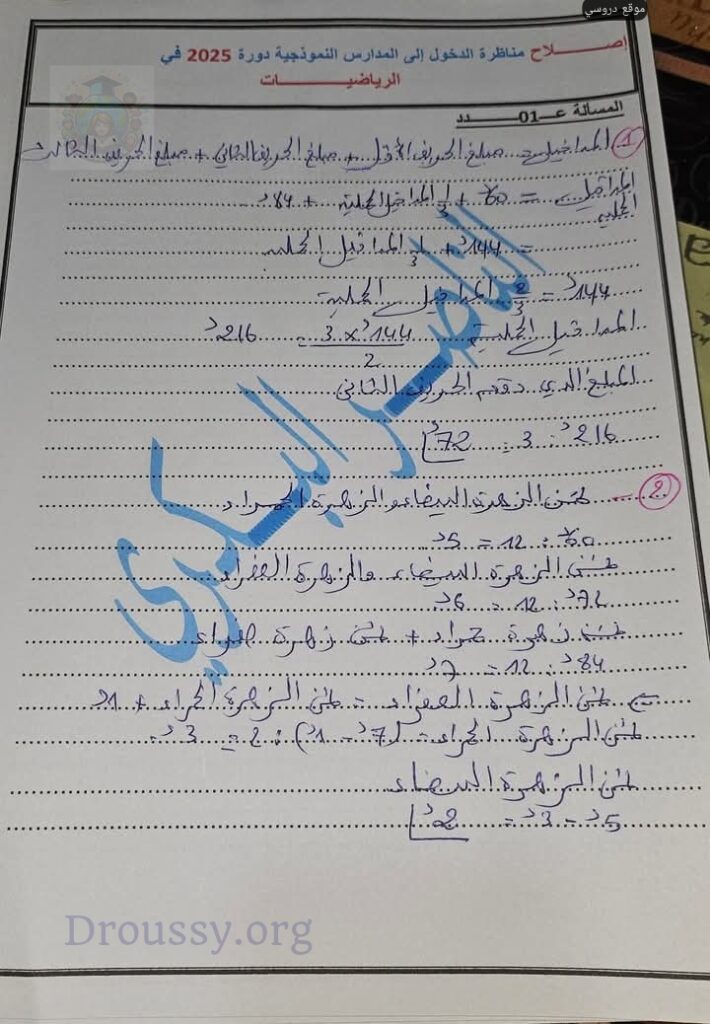 موقع دروسي
إصـــــلاح مناظرة الدخول إلى المدارس النموذجية دورة 2025 في
الرياضيـــــــــات
المسألة عـــ01ـــدد
1) المداخيل = مبلغ الحريف الأول + مبلغ الحريف الثاني + مبلغ الحريف الثالث
المداخيل الجملية = 60د + 1/3 المداخيل الجملية + 84د
= 144د + 1/3 المداخيل الجملية
144د = 2/3 المداخيل الجملية
المداخيل الجملية 144د × 3 / 2 = 216د
المبلغ الذي دفعه الحريف الثاني
216د : 3 = 72د
2) ثمن الزهرة البيضاء والزهرة الحمراء
60د : 12 = 5د
ثمن الزهرة البيضاء والزهرة الصفراء
72د : 12 = 6د
ثمن زهرة حمراء + ثمن زهرة صفراء
84د : 12 = 7د
ثمن الزهرة الصفراء = ثمن الزهرة الحمراء + 1د
ثمن الزهرة الحمراء = (7د - 1د) : 2 = 3د
ثمن الزهرة البيضاء
5د - 3د = 2د
الناصر البكري
Droussy.org